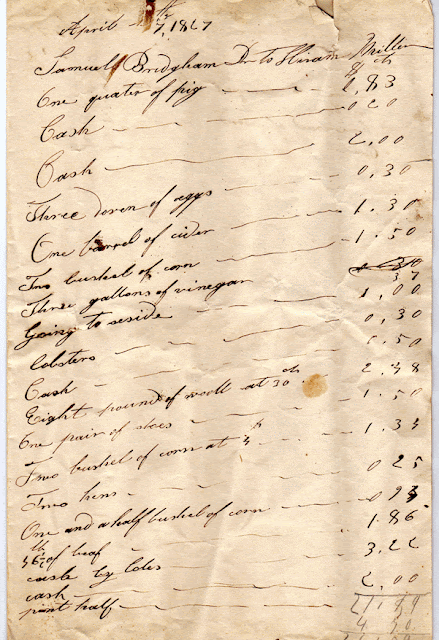 April 7th, 1827
Samuel Bridgham Dr to Hiram Millen
$ cts
One quater of pig 2,83
Cash 0 20
Cash 2,00
Three doven of eggs 0,30
One barrel of cider 1.30
Two bushel of corn 1.50
Three gallons of vinegar 37
Going to seside 1,00
lobsters 0,30
Cash 0,50
Eight pound of wooll at 30 cts 2.38
One pair of shoes 1.50
Two bushel of corn at 1.33
Two hens 0 25
One and a half bushel of corn 0 93
of beaf 1.86
cash by 3.22
cash 2.00
pant half 21.84
4 30